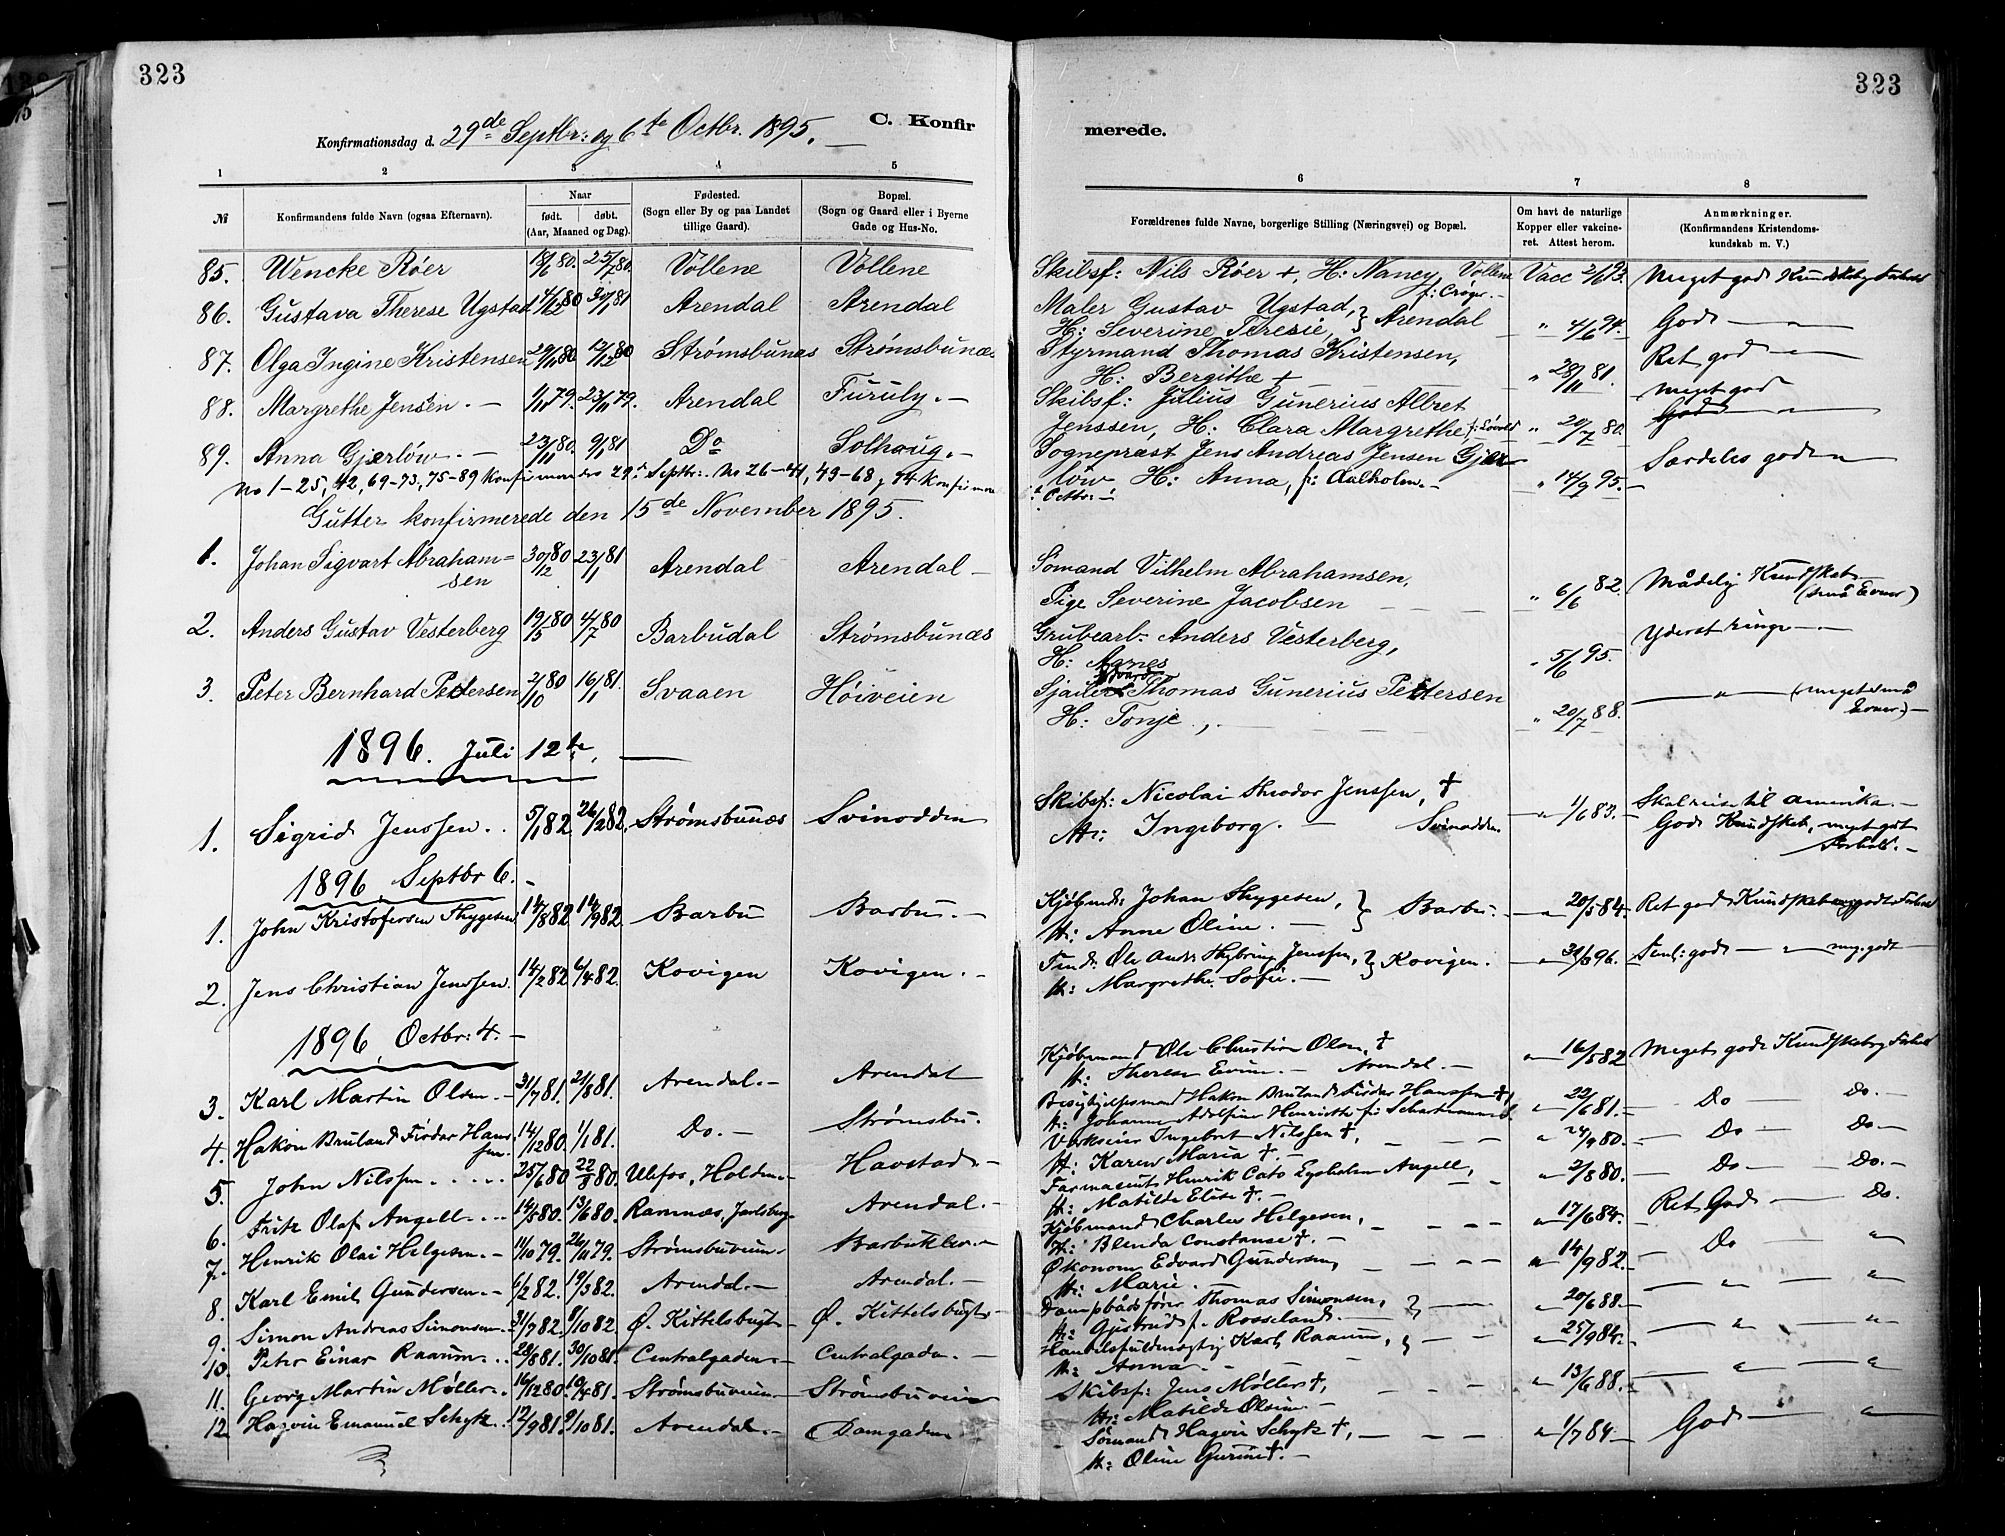 323
323
Konfirmationsdag d. 29de Septbr: og 6te Octbr. 1895.
C. Konfirmerede.
1 2 3 4 5 6 7 8
№
Konfirmandens fulde Navn (ogsaa Efternavn).
Naar
født. døbt.
(Aar, Maaned og Dag).
Fødested.
(Sogn eller By og paa Landet
tillige Gaard).
Bopæl.
(Sogn og Gaard eller i Byerne
Gade og Hus-No.
Forældrenes fulde Navne, borgerlige Stilling (Næringsvei) og Bopæl.
Om havt de naturlige
Kopper eller vakcineret. Attest herom.
Anmærkninger.
(Konfirmandens Kristendomskundskab m. V.)
85. Wencke Röer 18/6 80. 25/7 80. Vollene Vollene Skibsf: Nils Röer +, H: Nancy, Vollene Vacc 2/6 93. Meget god Kundskab og Forhold
f: Crøger.
86. Gustava Therese Ugstad 4/12 80 30/1 81 Arendal Arendal Maler Gustav Ugstad, } Arendal
H: Severine Teresie, " 4/6 94. God — "
87. Olga Ingine Kristensen 29/10 80 12/12 80 Strømsbunæs Strømsbunæs Styrmand Thomas Kristensen,
H: Bergithe + " 28/11 81. Ret god — "
88. Margrethe Jensen. — 1/10 79. 23/11 79. Arendal Furuly. — Skibsf: Julius Gunerius Albret
Jenssen, H: Clara Margrethe f: Løvold " 20/7 80. meget god
89. Anna Gjerløw. — 23/11 80. 9/1 81 Do Solhaug. — Sogneprest Jens Andreas Jensen Gjerløw H: Anna, f: Aalholm. — " 14/9 95. Særdeles god "
No 1–25, 42, 69–73, 75–89 konfirmeredes 29. Septbr. No 26–41, 43–68, 74 konfirm
Octbr:
Gutter konfirmerede den 15de November 1895.
1. Johan Sigvart Abrahamsen 30/12 80 23/1 81 Arendal Arendal — Sømand Vilhelm Abrahamsen,
Pige Severine Jacobsen " 6/6 82. Mådelig Kundskab (små Evner)
2. Anders Gustav Vesterberg 19/5 80 4/7 80 Barbudal Strømsbunæs Grubearb. Anders Vesterberg,
H: Agnes " 5/6 95. Yderst ringe —
3. Peter Bernhard Pettersen 2/10 80 16/1 81. Svaaen Høiveien Thomas Gunerius Pettersen
H: Tonje, " 20/7 88. — " (meget små Evner.) —
1896. Juli 12te. —
1. Sigrid Jenssen. 5/1 82 26/2 82. Strømsbunæs Svinodden Skibsf: Nicolai Theodor Jenssen, †
H: Ingeborg. — Svinodden " 1/6 83. Skal reise til Amerika. —
God Kundskab, meget godt Forhold. —
1896 Septbr 6. —
1. John Kristofersen Thygesen 14/8 82 14/9 82. Barbu Barbu. — Kjøbmd: Johan Thygesen,
H: Anne Oline. — } Barbu. — " 20/5 84. Ret god Kundskab og godt Forhold
2. Jens Christian Jenssen 14/2 82 6/4 82. Kovigen Kovigen. — Ole Andr. Jenssen, } Kovigen.
H: Margrethe Sofie. — " 31/8 96. Teml: god — " meg. godt
1896 Octbr: 4. —
3. Karl Martin Olsen. — 31/7 81. 21/8 81. Arendal. — Arendal Kjøbmand Ole Christian Olsen, †
H: Therese — Arendal. — " 16/5 82 Meget god Kundskab og Forhold
4. Hakon Bruland Fiodar Hanssen. 14/12 80. 1/1 81. Do. — Strømsbu. Hakon Bruland Fiodar Hanssen †,
H: Johanne Adolfine Henriette f: " 22/6 81. Do — Do. —
5. John Nilssen 25/6 80 22/8 80. Ulefos, Holden. Havstad. — Værkseier Ingebret Nilssen †,
H: Karen Maria †. — " 24/9 80. Do — Do. —
6. Fritz Olaf Angell 14/5 80. 13/6 80. Ramnæs, Jarlsberg Arendal. — Farmaceut Henrik Cato Angell,
H: Matilde Elise †. — " 2/8 80. Do — Do. —
7. Henrik Olai Helgesen. — 11/10 79. 26/11 79. Strømsbuveien. Barbukleiv. — Kjøbmand Charles Helgesen,
H: Blenda Constanse †. — " 17/6 84. Ret God — Do.
8. Karl Emil Gundersen. — 6/2 82. 19/3 82. Arendal. — Arendal. — Økonom Edvard Gundersen,
H: Marie. " 14/9 82. Do — "
9. Simon Andreas Simonsen 31/7 82. 8/10 82. Ø. Kittelsbugt Ø. Kittelsbugt Dampbådsfører Thomas Simonsen,
H: Gjertrud f. Rosseland. — " 20/6 88. — " — "
10. Peter Einar Raaum 28/8 81. 30/10 81. Centralgaden. — Centralgaden. — Handelsfuldmægtig Karl Raaum,
H: Anna. " 25/9 84. — " — "
11. Georg Martin Møller. 16/12 80. 10/4 81. Strømsbuveien Strømsbuveien Skibsf: Jens Møller †,
H: Matilde Olsine. — " 13/6 88. — " — "
12 Hagvin Emanuel Schyk. 12/9 81. 9/10 81. Arendal. — Damgaden Sømand Hagvin Schyk †,
H: Oline Gurine †. — " 1/7 84. God — "